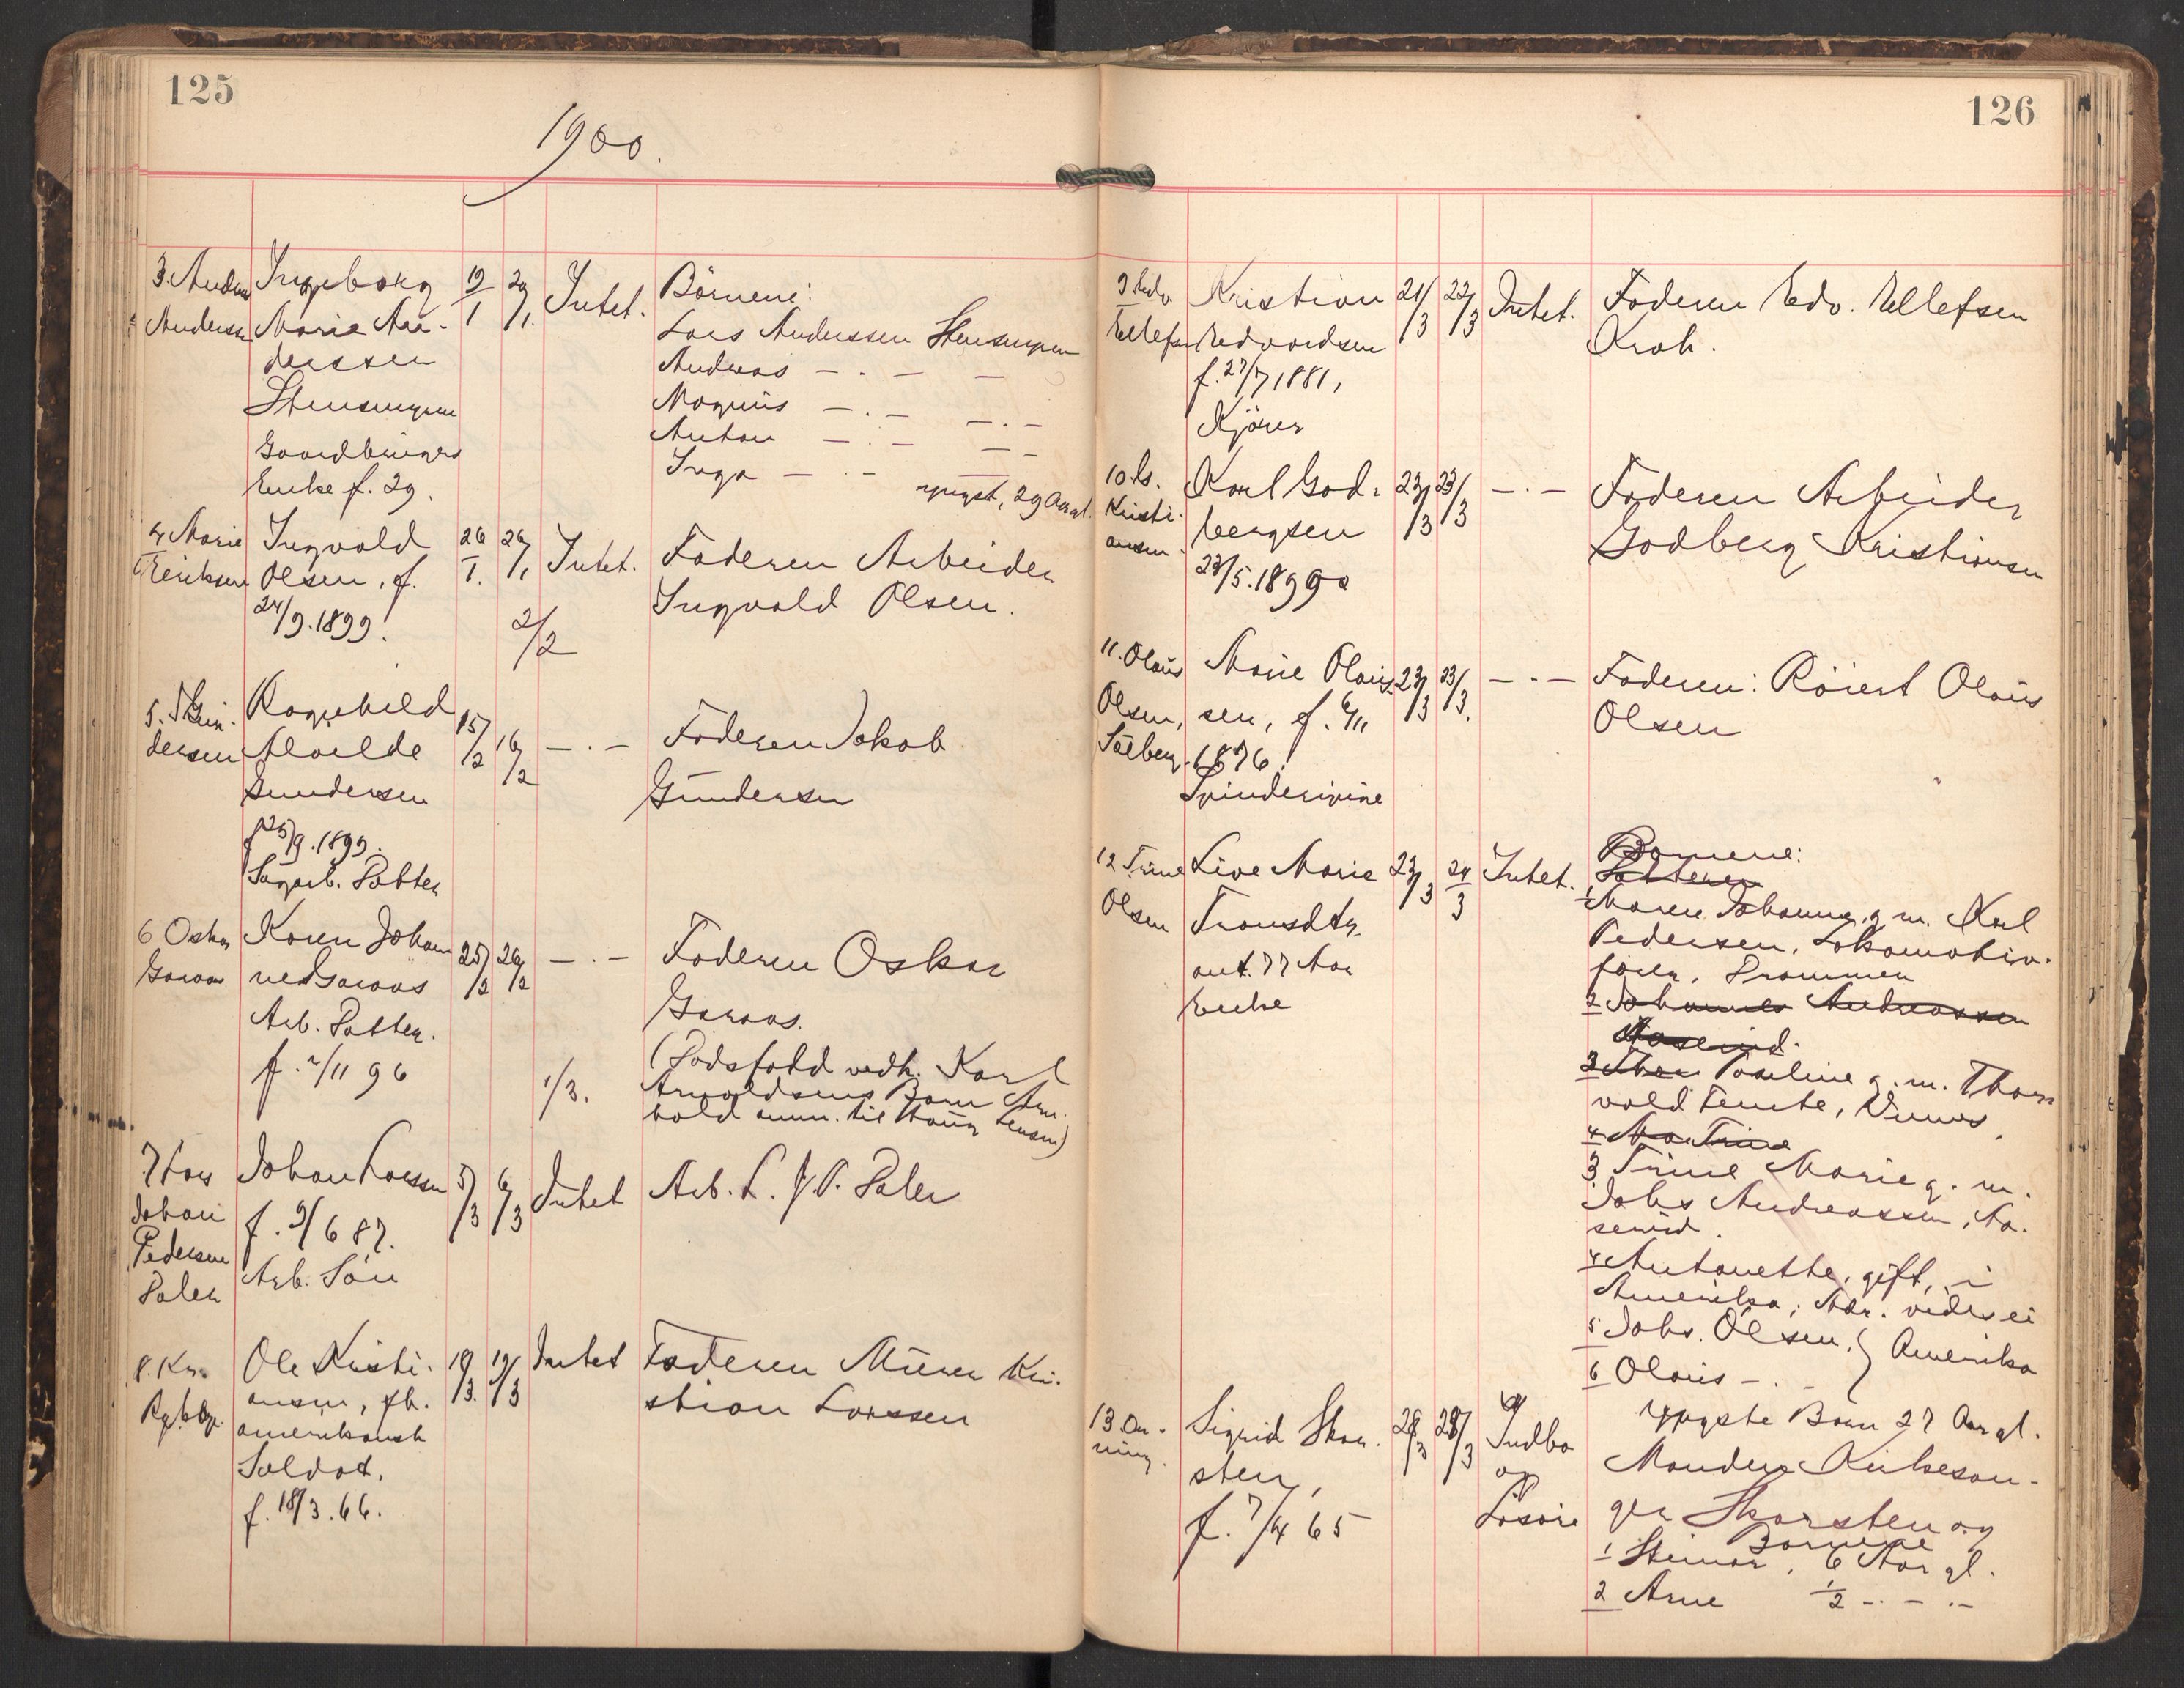 125
1900.
3. Andreas
Anderssen
Ingeborg
Marie An-
derssen
Stensmyren
Gaardbrugers
Enke f. 29.
19/1
29/1.
Intet.
Börnene:
Lars Anderssen Stensmyren
Andreas — . — —
Magnus — . — — . —
Anton — . — — —
Inga — . — —
yngst, 29 Aar gl.
4 Marie
Eriksen
Ingvald
Olsen, f.
24/9.1899.
26/1.
26/1
2/2
Intet.
Faderen Arbeider
Ingvald Olsen.
5. J. Gun-
dersen
Ragnhild
Alvilde
Gundersen
f 25/9.1899.
Sagarb. Datter
15/2
16/2
— . —
Faderen Jakob
Gundersen
6 Oskar
Garaas
Karen Johan
ne Garaas
Arb. Datter.
f. 2/11 96
25/2
26/2
— . —
Faderen Oskar
Garaas.
1/3.
(Dödsfald vedk. Karl
Arnoldsens Barn Arn.
hold anm. til
7 Lars
Johan
Pedersen
Dalen
Johan Larssen
f. 9/6 87.
Arb. Sön
5/3
6/3
Intet
Arb. L. J. P. Dalen
8. Kr.
Ole Kristi-
ansen, fh.
amerikansk
Soldat.
f. 18/3.66.
19/3.
19/3
Intet
Faderen Murer Kri-
stian Larssen
126
9 Edv.
Ellefsen
Kristian
Edvardsen
f. 27/7 1881,
Kjörer
21/3
22/3
Intet.
Faderen Edv. Ellefsen
Krok.
10. G.
Kristi-
ansen.
Karl God-
bergsen
23/5.1899
23/3
23/3
— . —
Faderen Arbeider
Godberg Kristiansen
11. Olaus
Olsen,
Solberg.
Marie Olaus-
sen, f. 6/11
1876.
Spinderipige
23/3
23/3.
— . —
Faderen: Röiert Olaus
Olsen
12 Trine
Olsen
Live Marie
Transdtr.
ant. 77 Aar
Enke
23/3
24/3
Intet.
Börnene:
Datteren
1 Maren Johanne, g. m. Karl
Pedersen, Lokomotiv-
förer, Drammen
2 Johannes Andreassen
Aaserud.
2 Thea Pauline g. m. Thor
vald Tente, Vinnes,
4 Ma Trine
3 Trine Marie g. m.
Johs Andreassen, Aa-
serud.
4 Antonette, gift, i
Amerika; Adr. vides ei
5 Johs. Olsen, } Amerika
6 Olaus — . —
yngste Barn 27 Aar gl.
13. Dr-
ning.
Sigrid Skar-
sten,
f. 7/4 65
28/3
28/3
Indbo
og
Lösöre
Manden Kirkesan-
ger Skarsten og
Börnene
1 Steinar, 6 Aar gl.
2 Arne 1/2 — . — . —